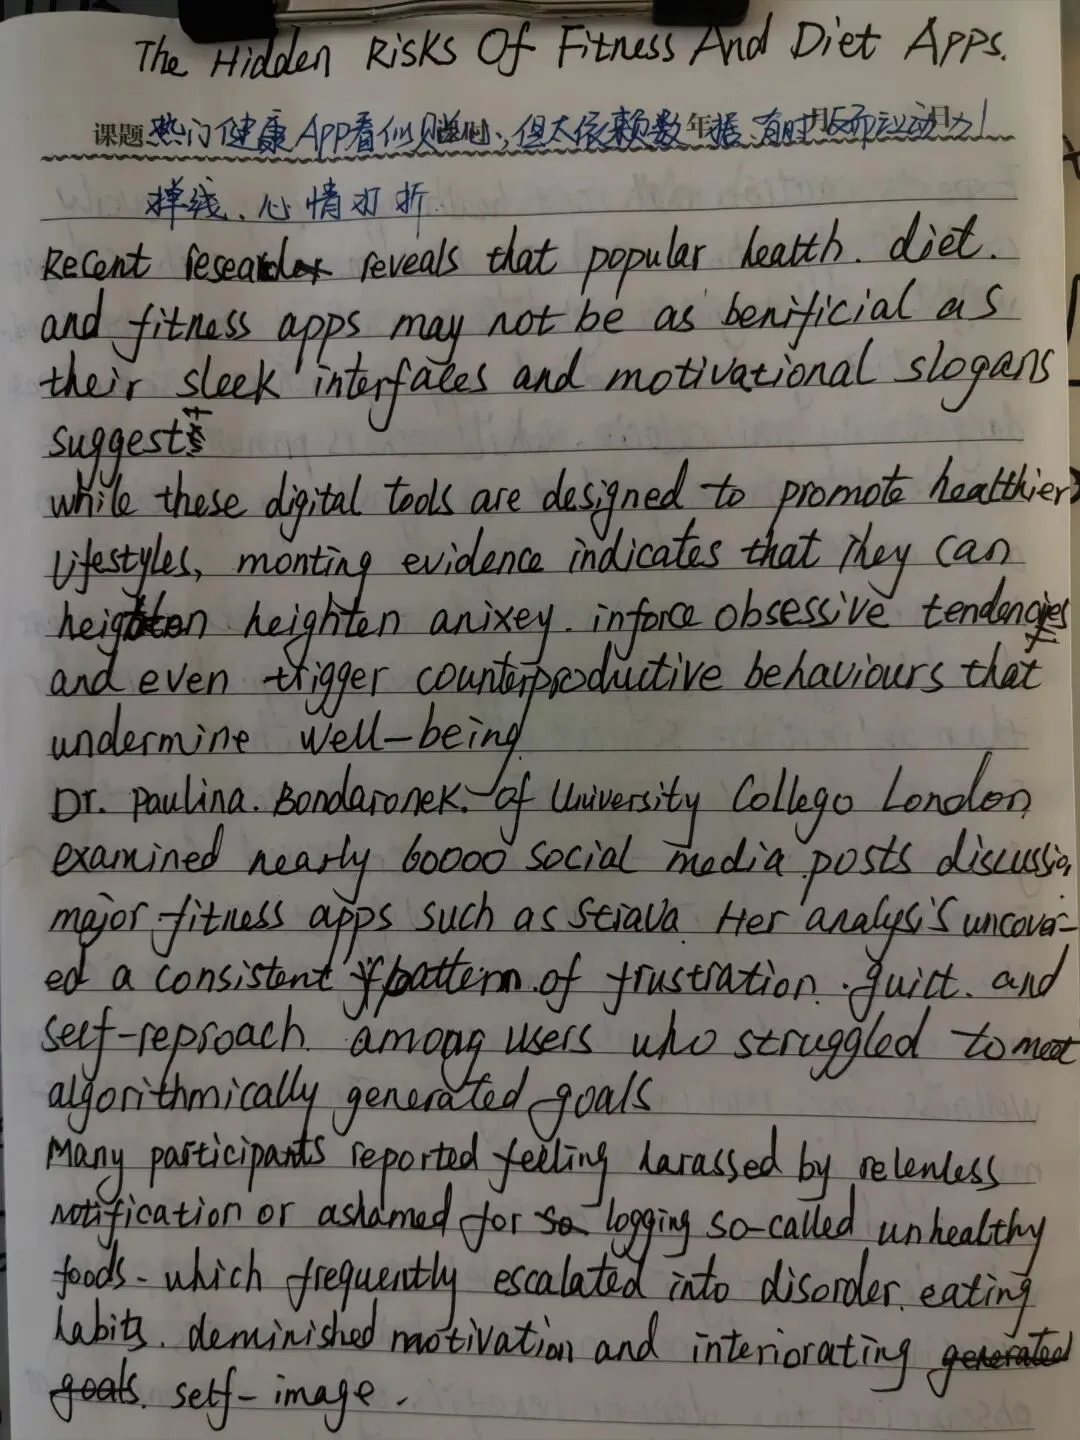 The Hidden Risks Of Fitness And Diet Apps.
课题 热门健康App看似贴心,但太依赖数据,有时反而让动力
年 月 日
掉线、心情打折.
Recent reveals that popular health. diet.
and fitness apps may not be as benificial as
their sleek interfaces and motivational slogans
suggest
while these digital tools are designed to promote healthier
lifestyles, monting evidence indicates that they can
heighten anixey. inforce obsessive tendencies
and even trigger counterproductive behaviours that
undermine well-being
Dr. Paulina. Bondaronek. of University Collego London
examined nearly 60000 social media posts discussin
major fitness apps such as Strava. Her analysis uncover-
ed a consistent pattern of frustration. guilt. and
self-reproach. among users who struggled to meet
algorithmically generated goals
Many participants reported feeling harassed by relenless
notification or ashamed for logging so-called unhealthy
foods - which frequently escalated into disorder. eating
habits. deminished motivation and interiorating generated
goals. self-image.